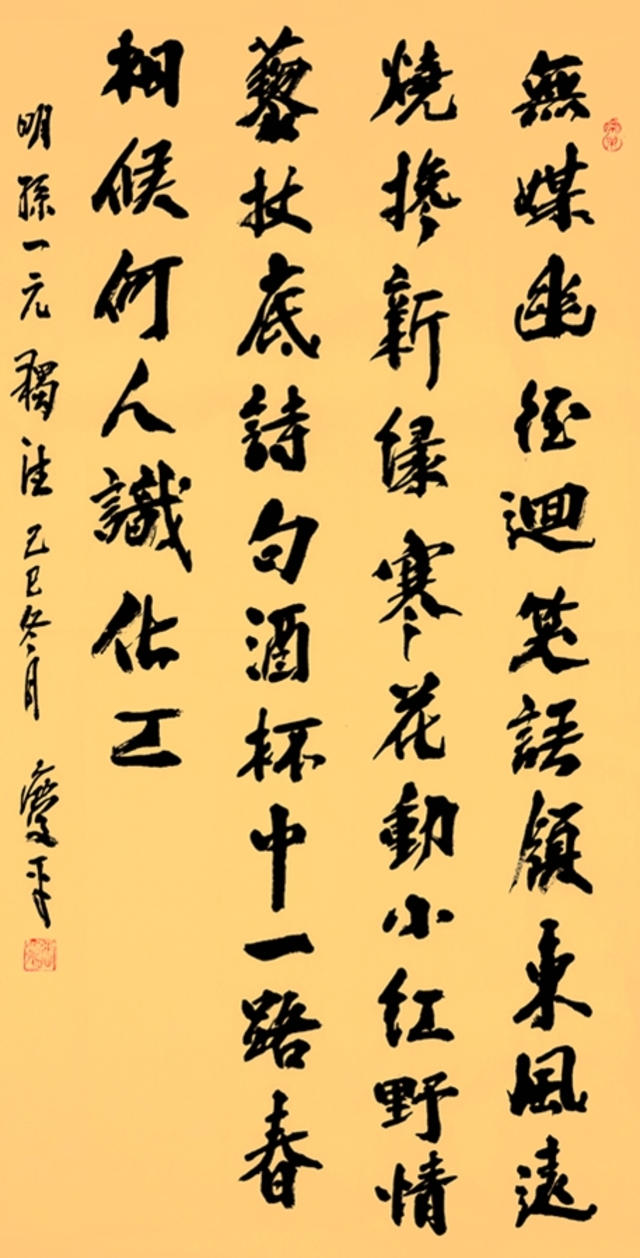 無媒幽徑迴笑語領東風遠
燒摻新緑寒花動小紅野情
藜杖底詩句酒杯中一路春
相候何人識化工
明孫一元獨往 己巳冬月 慶平